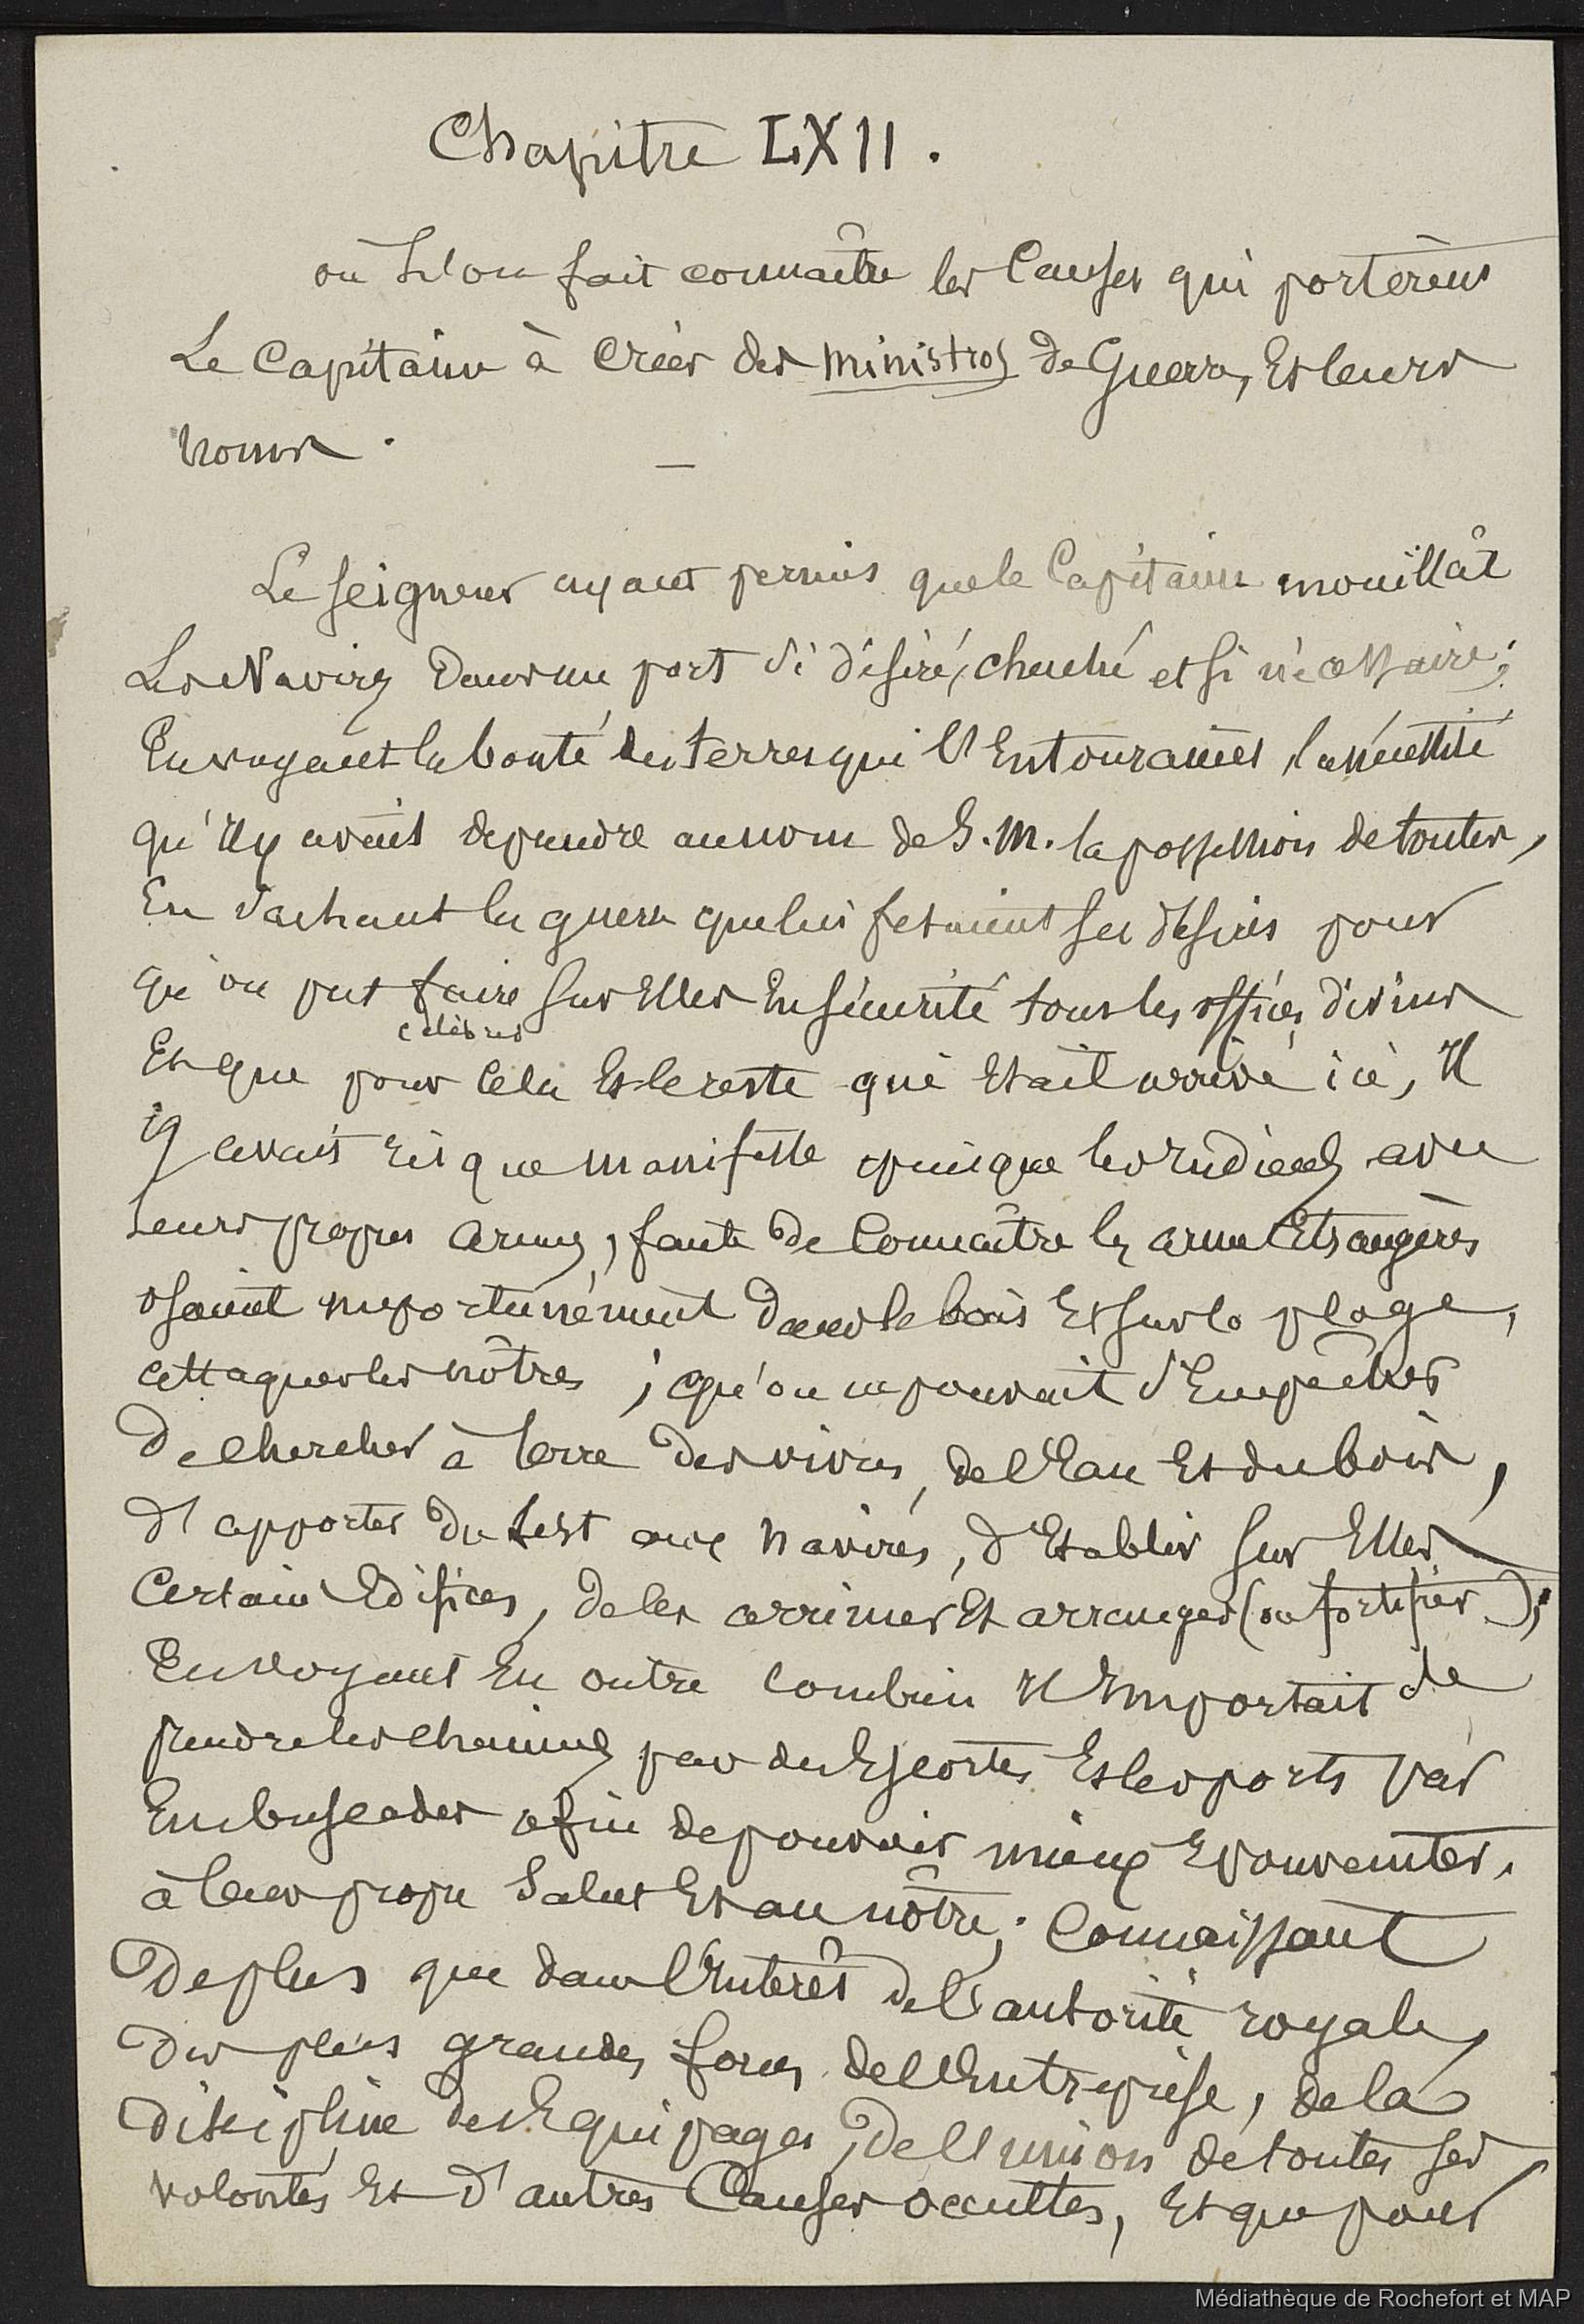 Chapitre LXII.
où l'on fait connaître les Causes qui portèrent
Le Capitaine à Créer des ministros de Guerra, Et leurs
noms.
Le seigneur ayant permis que le Capitaine mouillât
Les Navires Dans un port si désiré, cherché et si nécessaire;
En voyant la bonté des terres qui l'Entouraient, la nécessité
qu'il y avait de prendre au nom de S. M. la possession de toutes,
En sachant la guerre que lui fesaient ses désirs pour
qu'on put faire sur Elles En sécurité tous les offices divins
célébrés
Et que pour Cela Et le reste qui Etait arrivé ici, Il
y avait risque manifeste puisque les Indiens avec
Leurs propres armes, faute De Connaître les armes Etrangères
osaient importunément Dans le bois Et sur la plage,
attaquer les nôtres; qu'on ne pouvait s'Empêcher
De chercher à terre Des vivres, de l'Eau Et du bois,
d'apporter Du lest aux Navires, d'Etablir sur Elles
Certains Edifices, de les arrimer Et arranger (ou fortifier);
En voyant En outre Combien Il Importait de
prendre les Chemins par des Escortes Et les ports par
Embuscades afin de pouvoir mieux Epouvanter,
à leur propre Salut Et au nôtre; Connaissant
De plus que dans l'Intérêt de l'autorité royale,
Des plus grandes forces de l'Entreprise, de la
Discipline des Equipages, De l'union de toutes ses
volontés Et d'autres Causes occultes, Et que pour
Médiathèque de Rochefort et MAP